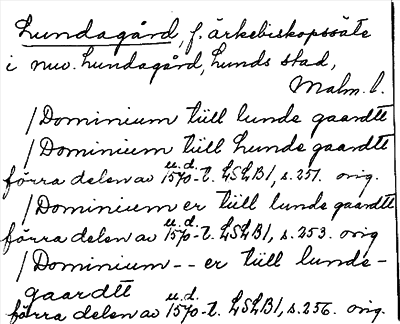 Lundagård, f. ärkebiskopssäte
i nuv. Lundagård, Lunds stad,
Malm. l.
/Dominium tüll lunde gaardtt
/Dominium tüll Lunde gaardtt
förra delen av u.d. 1570-t. LSLB1, s. 251. orig.
/Dominium er tüll lunde gaardtt
förra delen av u.d. 1570-t. LSLB1, s. 253. orig
/Dominium -- er tüll lunde-
gaardtt
förra delen av u.d. 1570-t. LSLB1, s. 256. orig.